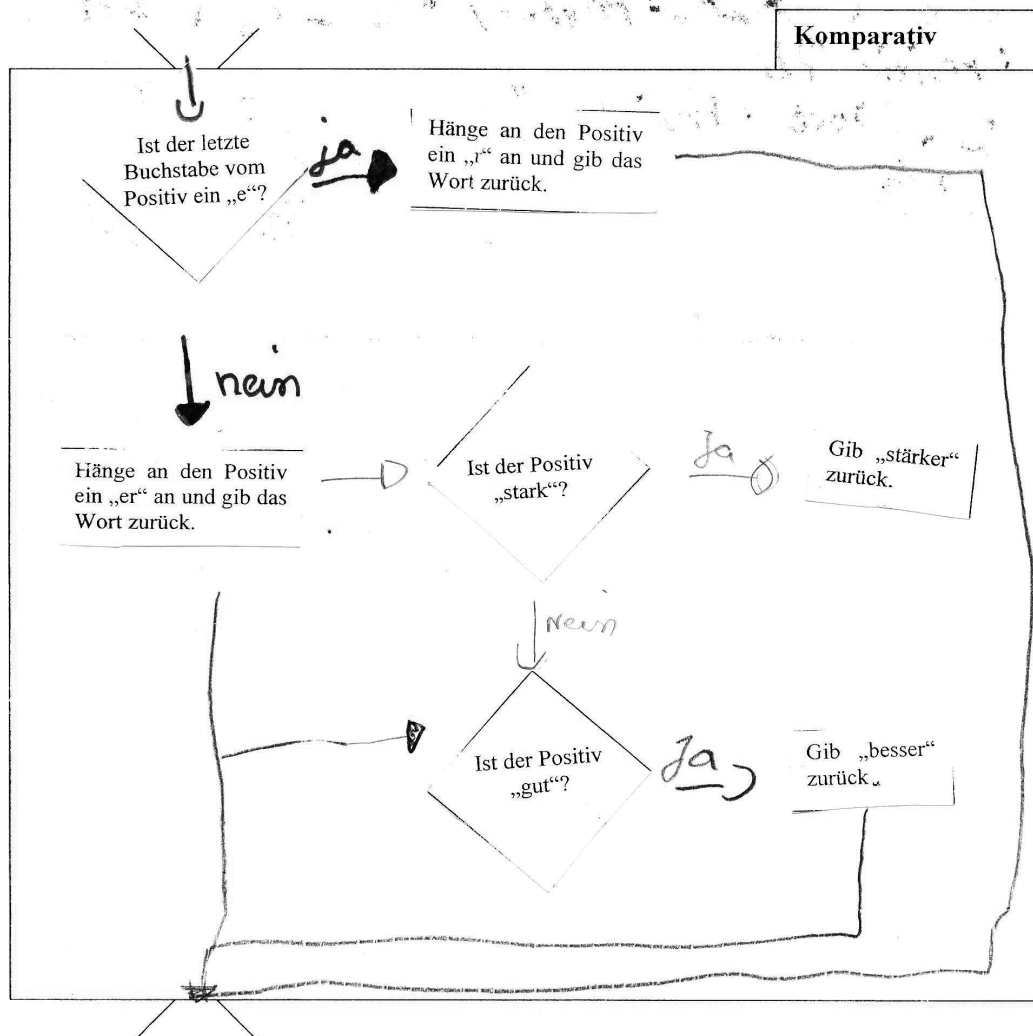 Komparativ
Ist der letzte
Buchstabe vom
Positiv ein „e“?
ja
Hänge an den Positiv
ein „r“ an und gib das
Wort zurück.
nein
Hänge an den Positiv
ein „er“ an und gib das
Wort zurück.
Ist der Positiv
„stark“?
Ja
Gib „stärker“
zurück.
Nein
Ist der Positiv
„gut“?
Ja
Gib „besser“
zurück.